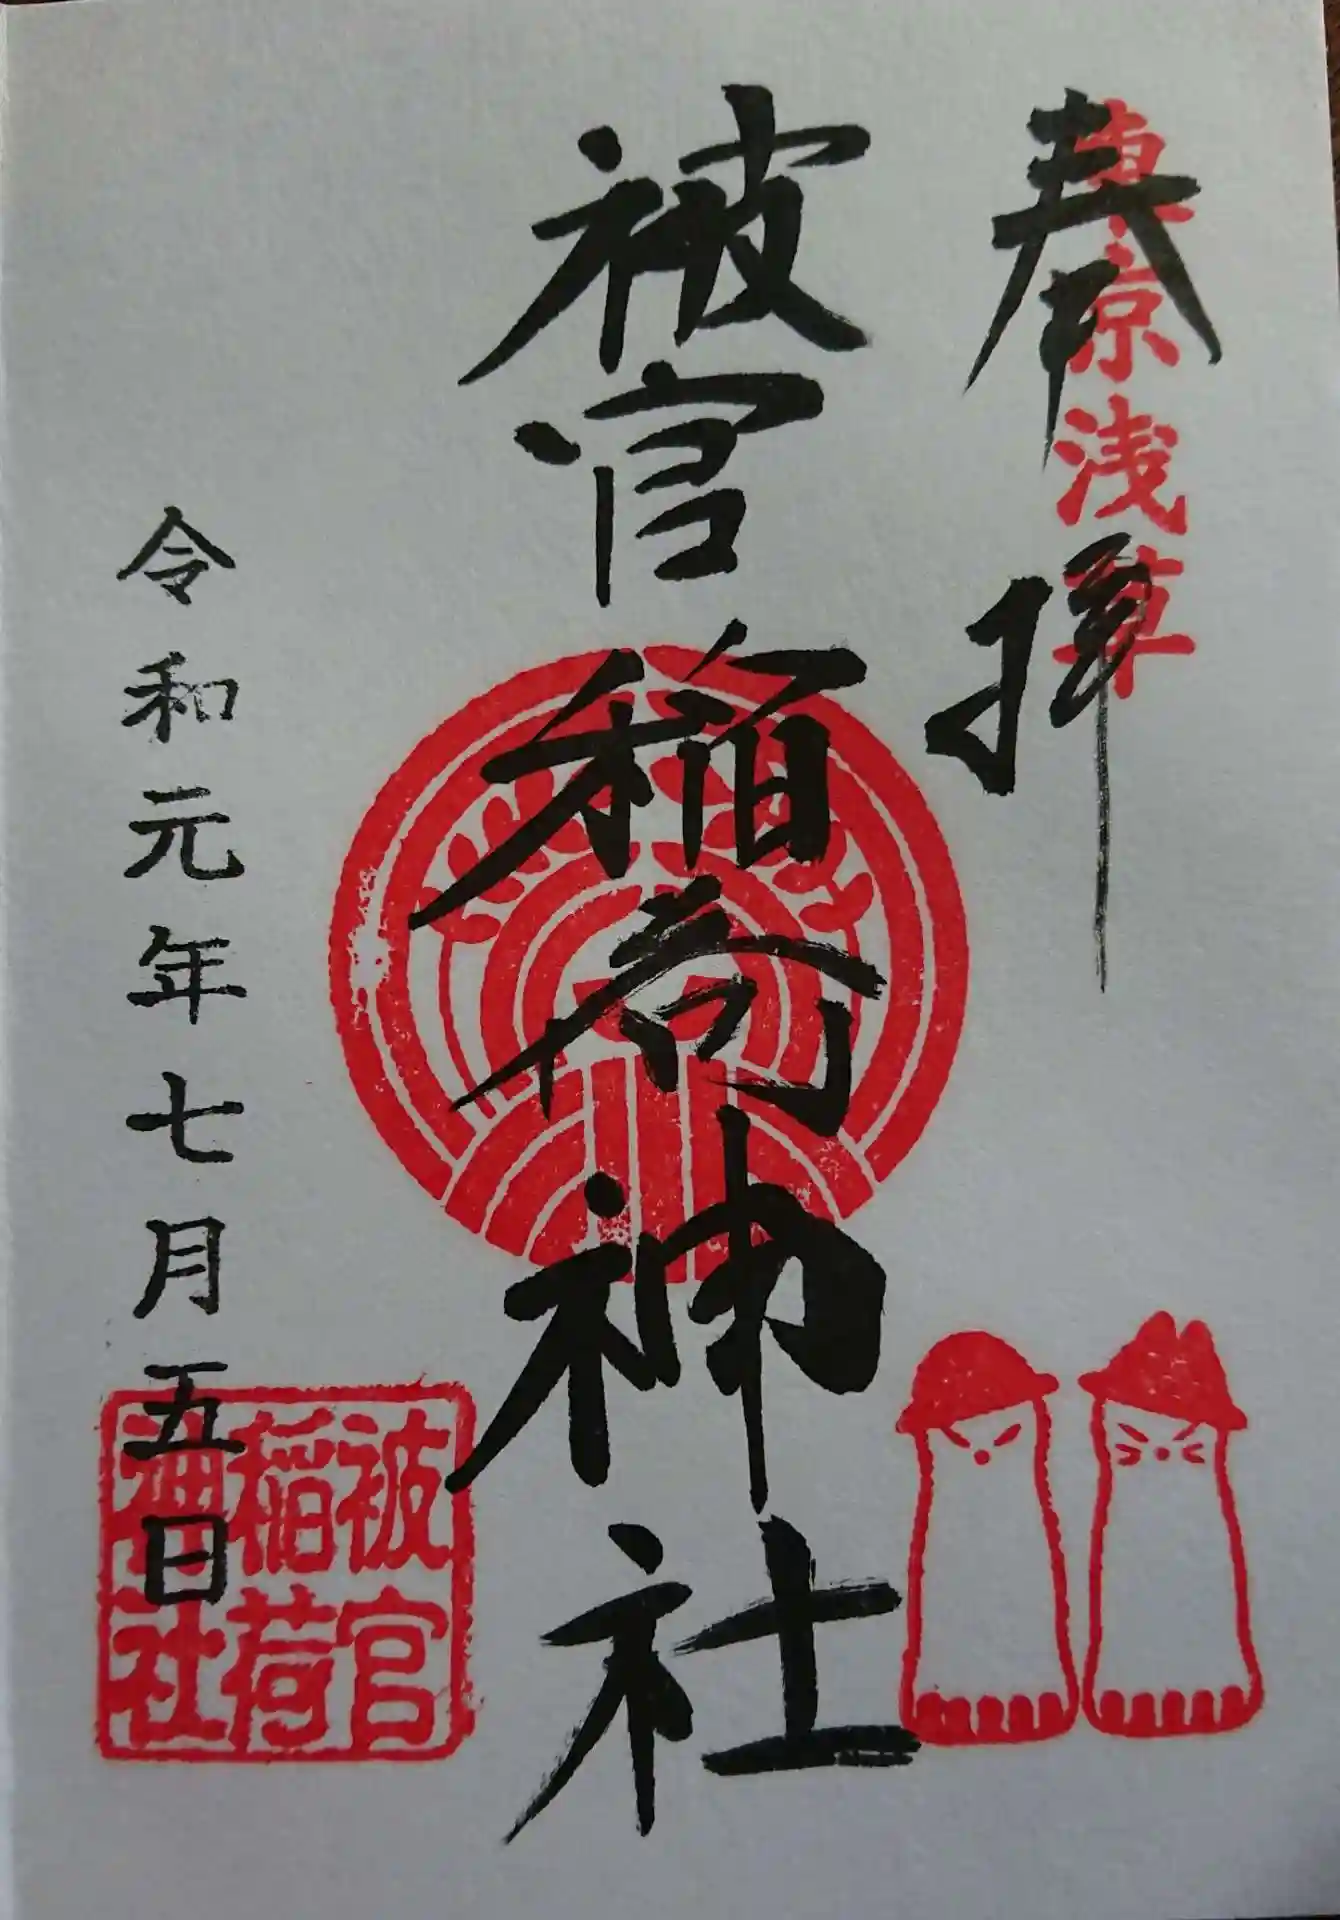 奉拝
東京浅草
被官稲荷神社
令和元年七月五日
被官
稲荷
神社